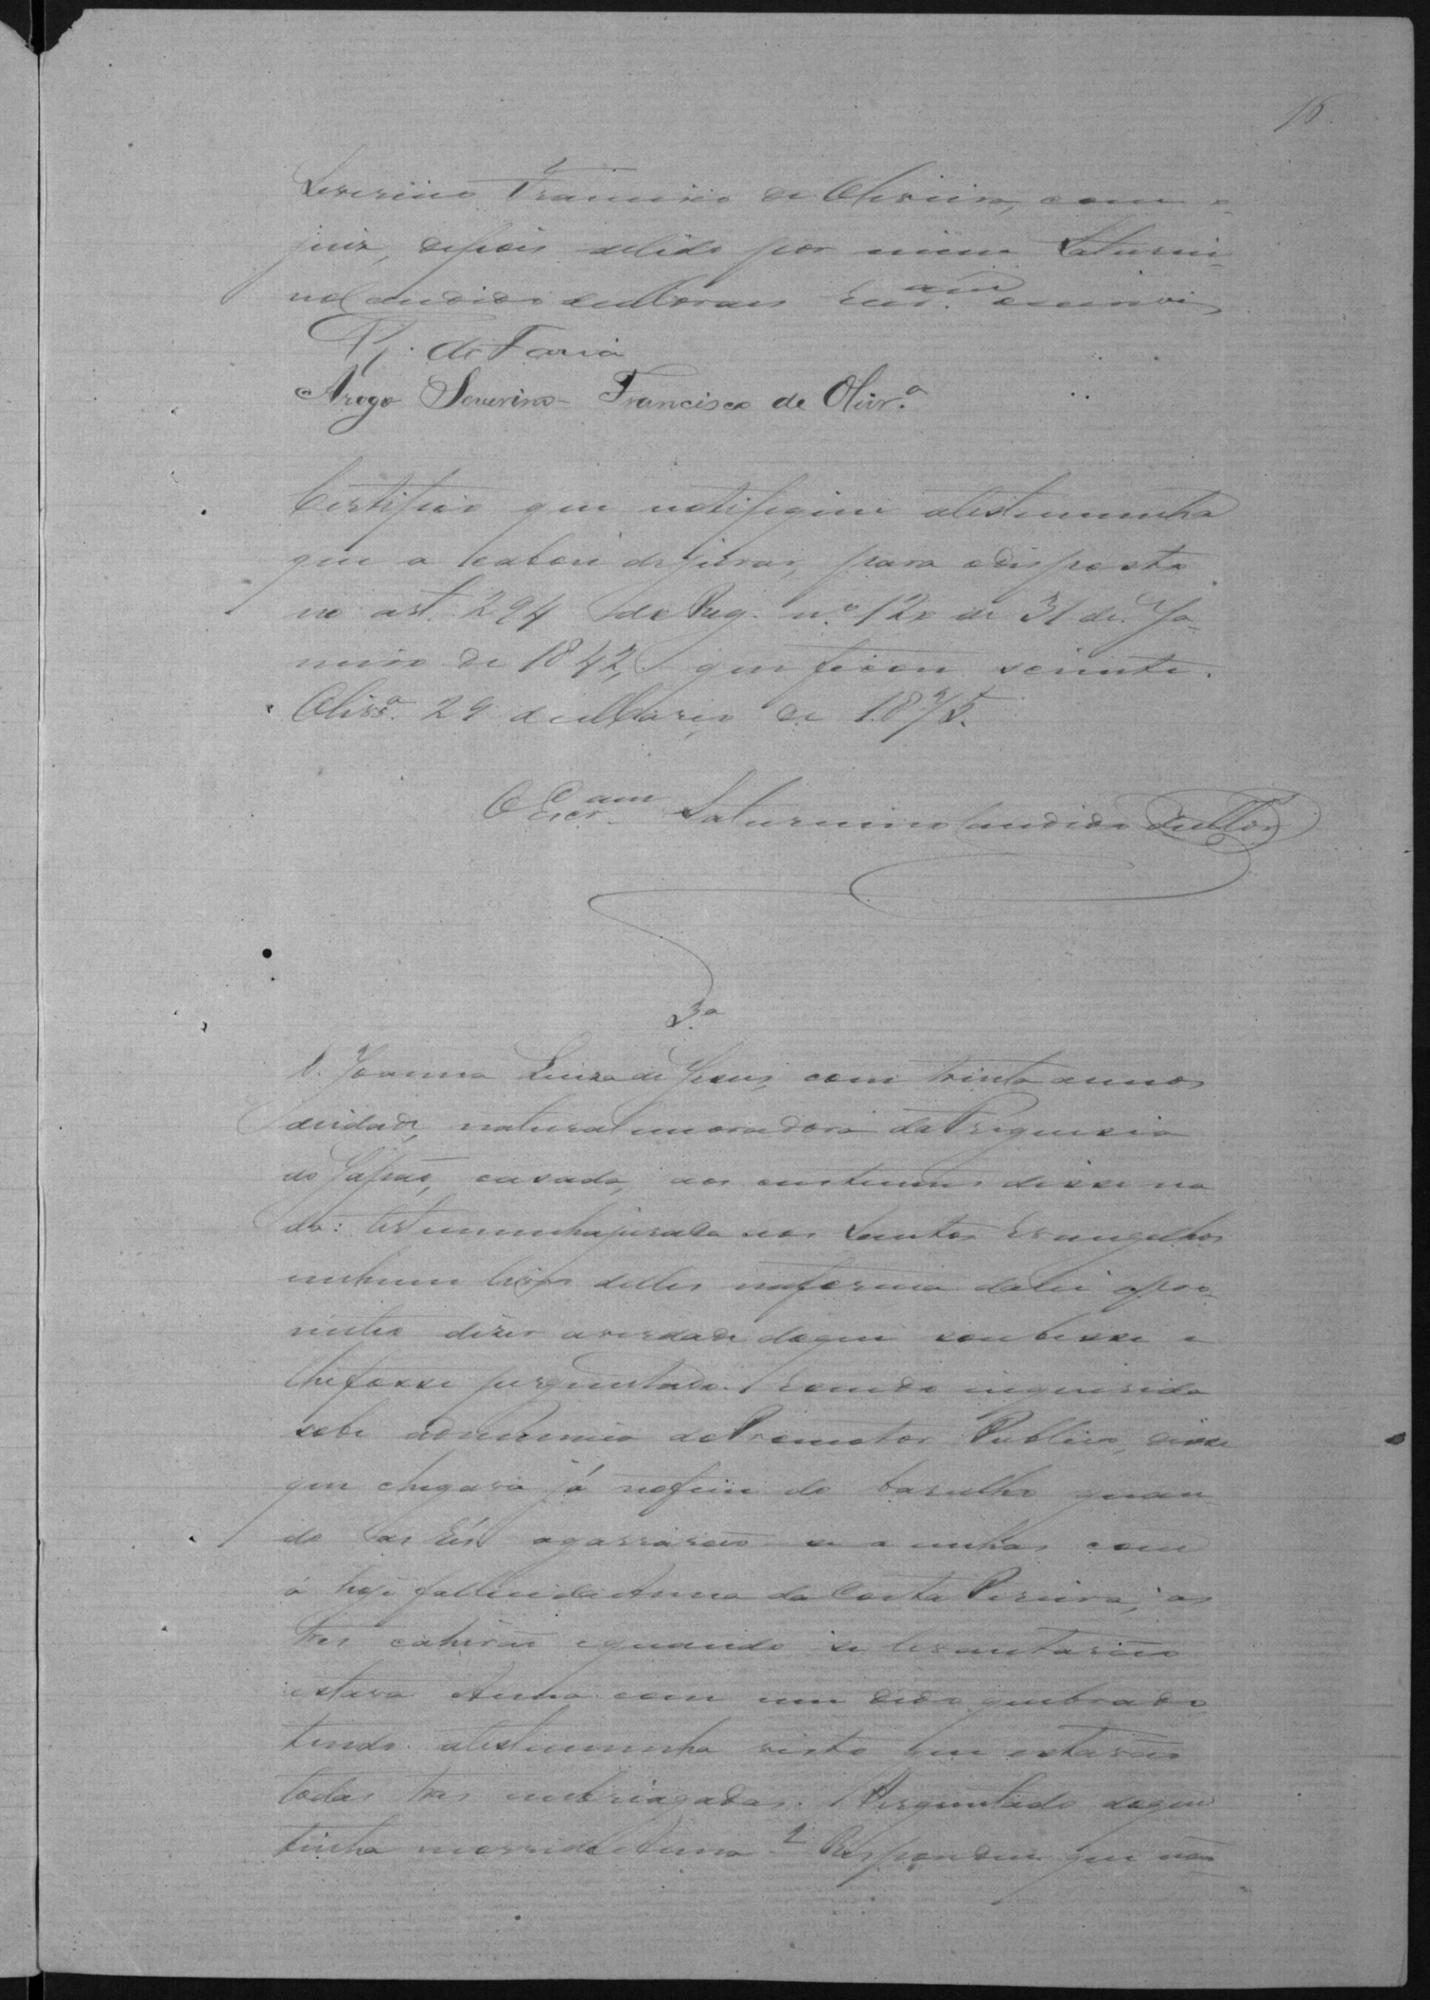 16
Severino Francisco de Oliveira, com o
juiz, depois de lido por mim Saturni-
no Candido dented Escr.am escrevi
P. de Faria
Arogo Severino Francisco de Olivr.a
Certifico que notifiquei atestemunha
que a cabou dejurar, para odisposto
no art. 294 do Reg. n.o 120 de 31 de Ja-
neiro de 1842, que ficou sciente.
Olivr.a 29 de Março de 1875.
O Escr.am Saturnino Candido
3.a
D. Joanna Luiza de Jesus, com trinta annos
deidade, natural moradora da Freguesia
do Japão, casada, aos custumes disse na
da: testemunha jurada aos Santos Evangelhos
em hum livro delles naforma dalei epro-
metteo dizer averdade doque soubesse e
lhe fosse perguntado. E sendo inquerida
sobe adenuncia do Promotor Publico, disse
que chegara já nofim do barulho quan-
do as Rés agarrárão se a unhas com
a hoje fallecida Anna da Costa Pereira, as
tres cahirão equando se levantarão
estava Anna com um dedo quebrado
tendo atestemunha visto que estavão
todas tres embriagadas. Perguntado doque
tinha morrido Anna? Respondeu que não